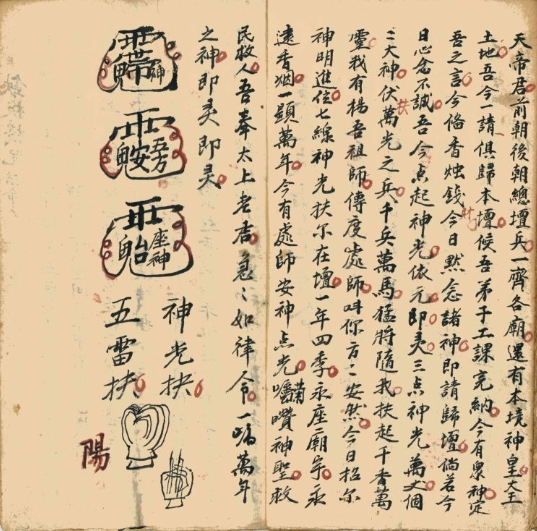 天帝君前朝後朝總壇兵一齊各廟還有本境神皇大王
土地吾今一請俱歸本壇候吾弟子工課完納今有眾神定
吾之言今俻香烛錢今日焚念諸神即請歸壇倘若今
日心念不誠吾今点起神光依元即灵三点神光萬丈個
二大神伏萬光之兵千兵萬馬猛將隨我扶起千香萬
靈我有楊吾祖師傳度處師叫你方二安然今日招尔
神明進位七線神光扶尔在壇一年四季永座廟宇永
遠香烟一顕萬年今有處師安神点光囑讚神聖救
民救人吾奉太上老君急二如律令一啼萬年
之神即灵即灵
神
吾方
安
座神
神光扶
五雷扶
陽